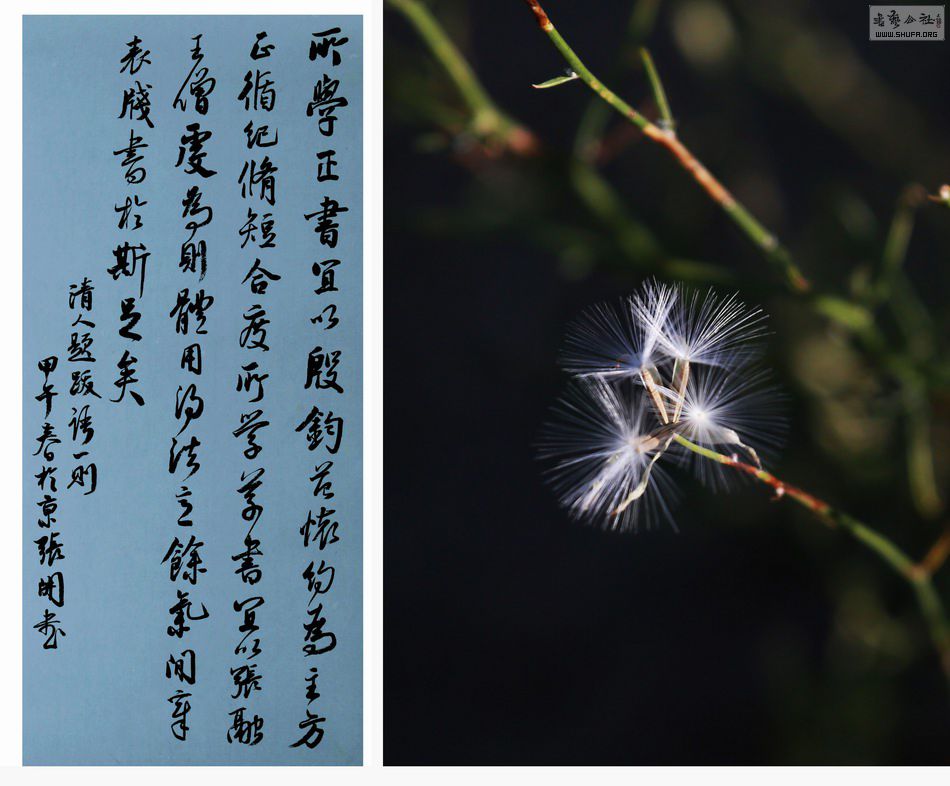 所學正書宜以殷鈞范懷約為主方
正循紀脩短合度所学草書宜以張融
王僧虔為則體用得法意餘氣閒章
表牋書於斯足矣
清人題跋語一則
甲午春於京張開書
书艺公社
WWW.SHUFA.ORG